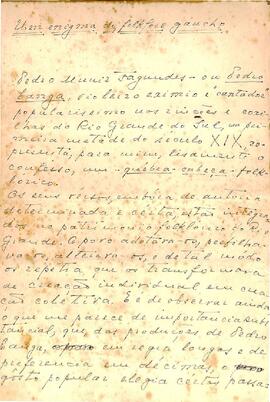 Um enigma do folklore gaucho
Pedro Muniz Fagundes - ou Pedro
Canga, violeiro eximio e "cantador"
popularissimo nos rincões e coxi-
lhas do Rio Grande do Sul, na pri-
meira metade do século XIX, re-
presenta, para mim, lisamente o
confesso, um quebra-cabeça folk-
lórico.
Os seus versos, embóra de autoria
determinada e certa, estão integra-
dos no patrimonio folklorico do Rio
Grande. O povo adotára-os, perfilha-
ra-os, alterára-os, e de tal modo
os repetia que os transformára
de creação individual em cre-
ação coletiva. É de observar ainda
o que me parece de importancia subs-
tancial, que das produções de Pedro
Canga, em regra longas e de
preferencia em décima, o
gôsto popular elegia certas passa-